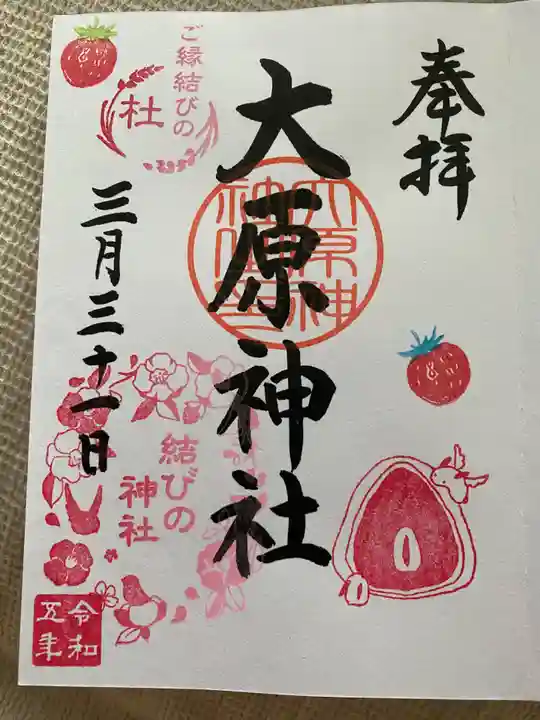 奉拝
大原神社
大原神社御印
ご縁結びの
杜
三月三十一日
結びの
神社
令和
五年